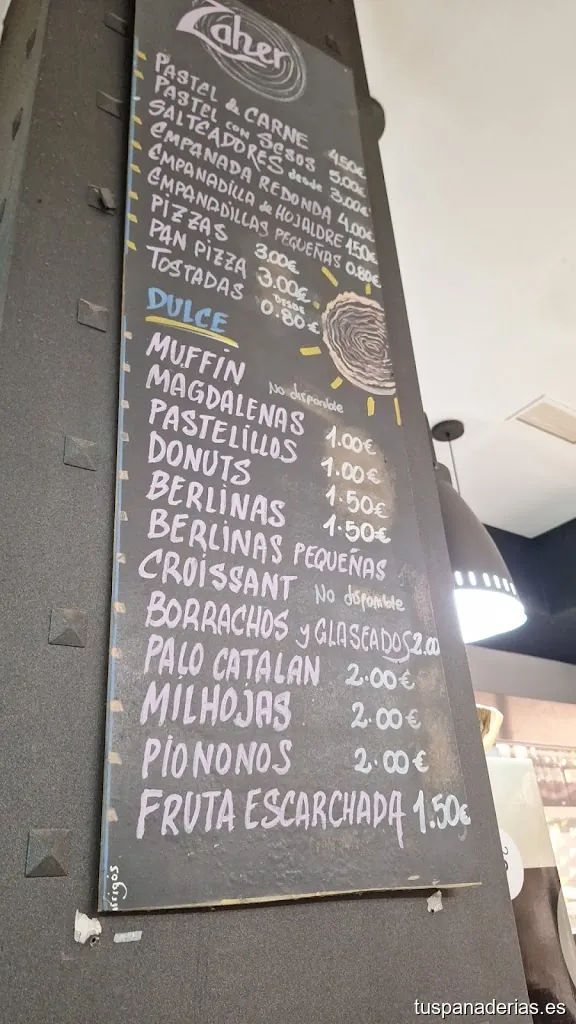 Zaher
PASTEL & CARNE 4.50€
PASTEL CON SESOS 5.00€
SALTEADORES desde 3.00€
EMPANADA REDONDA 4.00€
EMPANADILLA de HOJALDRE 1.50€
EMPANADILLAS PEQUEÑAS 0.80€
PIZZAS 3.00€
PAN PIZZA 3.00€
TOSTADAS DESDE 0.80€
DULCE
MUFFIN No disponible
MAGDALENAS 1.00€
PASTELILLOS 1.00€
DONUTS 1.50€
BERLINAS 1.50€
BERLINAS PEQUEÑAS
CROISSANT No disponible
BORRACHOS y GLASEADOS 2.00
PALO CATALAN 2.00€
MILHOJAS 2.00€
PIONONOS 2.00€
FRUTA ESCARCHADA 1.50€
tuspanaderias.es